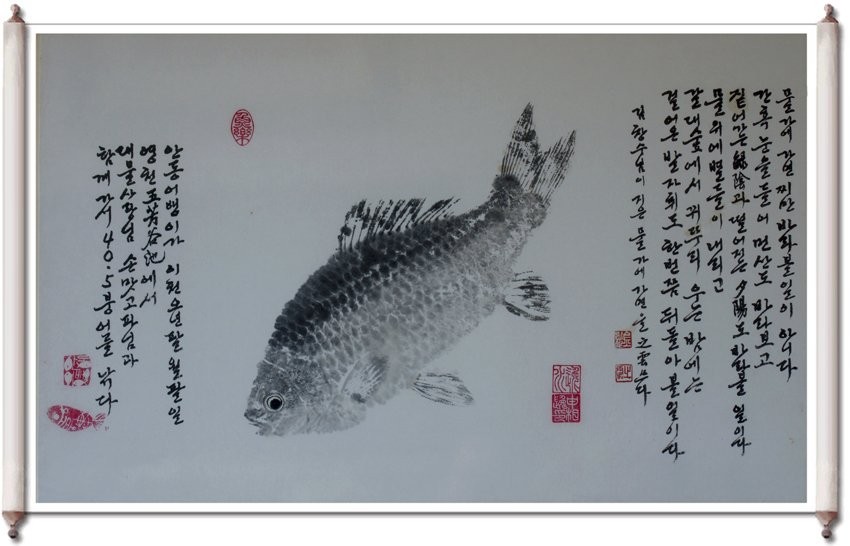 물가에 가면 찌만 바라볼 일이 아니다
간혹 눈을 들어 먼산도 바라보고
짙어가는 綠陰과 떨어지는 夕陽도 바라볼 일이다
물 위에 별들이 내리고
갈대숲에서 귀뚜리 우는 밤에는
걸어온 발자취도 한번쯤 뒤돌아 볼일이다
김황수님이 지은 물가에 가면을 쓰다
안동어뱅이가 이천오년팔월팔일
영천 玉谷池에서
대물사장님 손맛고파님과
함께 가서 40.5붕어를 낚다